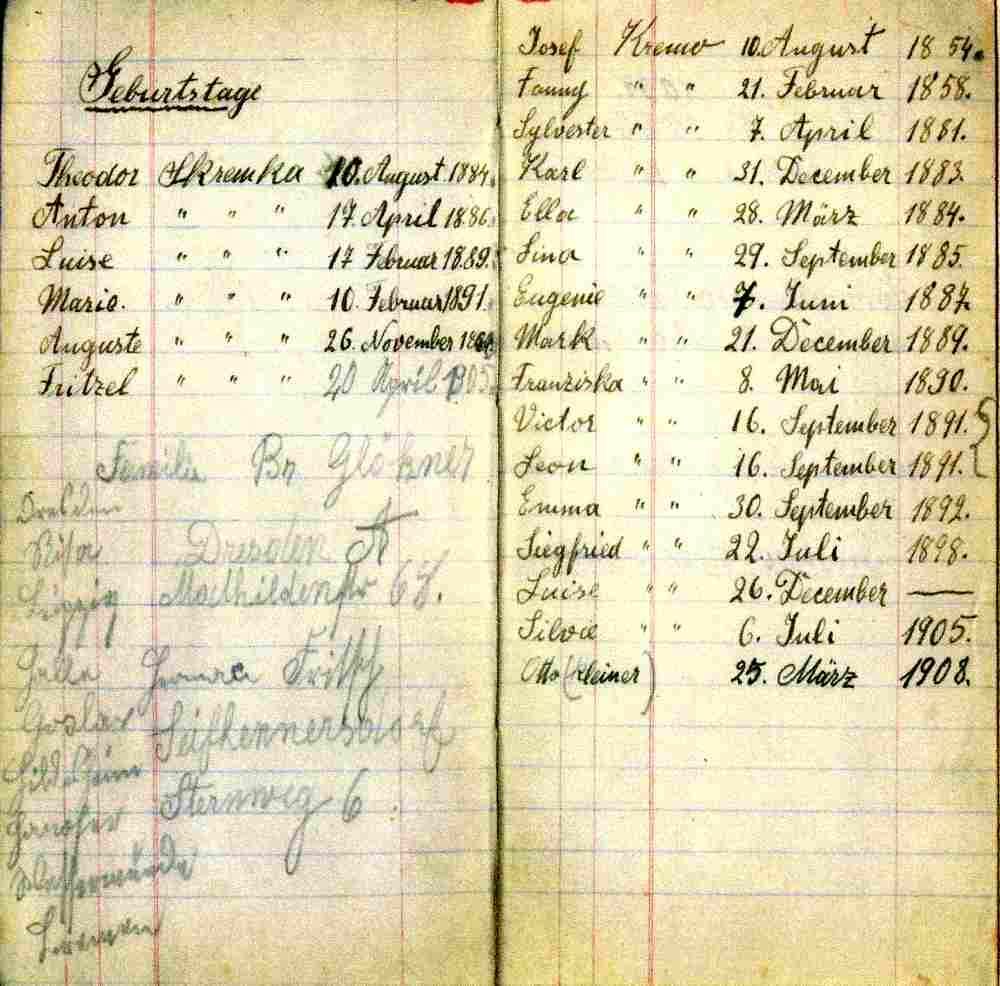 Geburtstage
Theodor Skremka 10. August 1884.
Anton " " " 17 April 1886.
Luise " " " 17 Februar 1889.
Marie. " " " 10. Februar 1891.
Auguste " " " 26. November
Fritzel " " " 20 April 1905
Familie Br Glökner
Dresden
Risa Dresden A
Leipzig Mathildenstr
Halle Herman Fritsch
Goslar Seifhennersdorf
Hildesheim
Hanofer Sternweg 6
Bremen
Josef Kremo 10. August 1854.
Fanny " " 21. Februar 1858.
Sylvester " " 7. April 1881.
Karl " " 31. December 1883.
Ella " " 28. März 1884.
Lina " " 29. September 1885.
Eugenie " " 7. Juni 1887.
Mark " " 21. December 1889.
Franziska " " 8. Mai 1890.
Victor " " 16. September 1891.
Leon " " 16. September 1891.
Emma " " 30. September 1892.
Siegfried " " 22. Juli 1898.
Luise " " 26. December —
Silvia " " 6. Juli 1905.
Otto (kleiner) 25. März 1908.